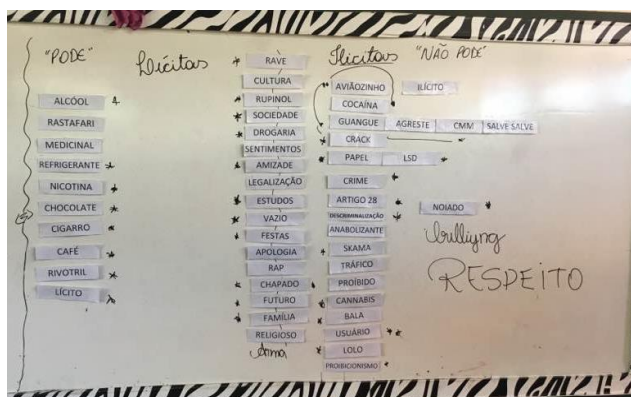 "PODE"
Lícitas
Ilícitas
"NÃO PODE"
ALCÓOL
RASTAFARI
MEDICINAL
REFRIGERANTE
NICOTINA
CHOCOLATE
CIGARRO
CAFÉ
RIVOTRIL
LÍCITO
RAVE
CULTURA
RUPINOL
SOCIEDADE
DROGARIA
SENTIMENTOS
AMIZADE
LEGALIZAÇÃO
ESTUDOS
VAZIO
FESTAS
APOLOGIA
RAP
CHAPADO
FUTURO
FAMÍLIA
RELIGIOSO
Arma
AVIÃOZINHO
COCAÍNA
GUANGUE
CRACK
PAPEL
CRIME
ARTIGO 28
DESCRIMINALIZAÇÃO
ANABOLIZANTE
SKAMA
TRÁFICO
PROÍBIDO
CANNABIS
BALA
USUÁRIO
LOLO
PROIBICIONISMO
ILÍCITO
AGRESTE
CMM
SALVE SALVE
LSD
NOIADO
bulliyng
RESPEITO